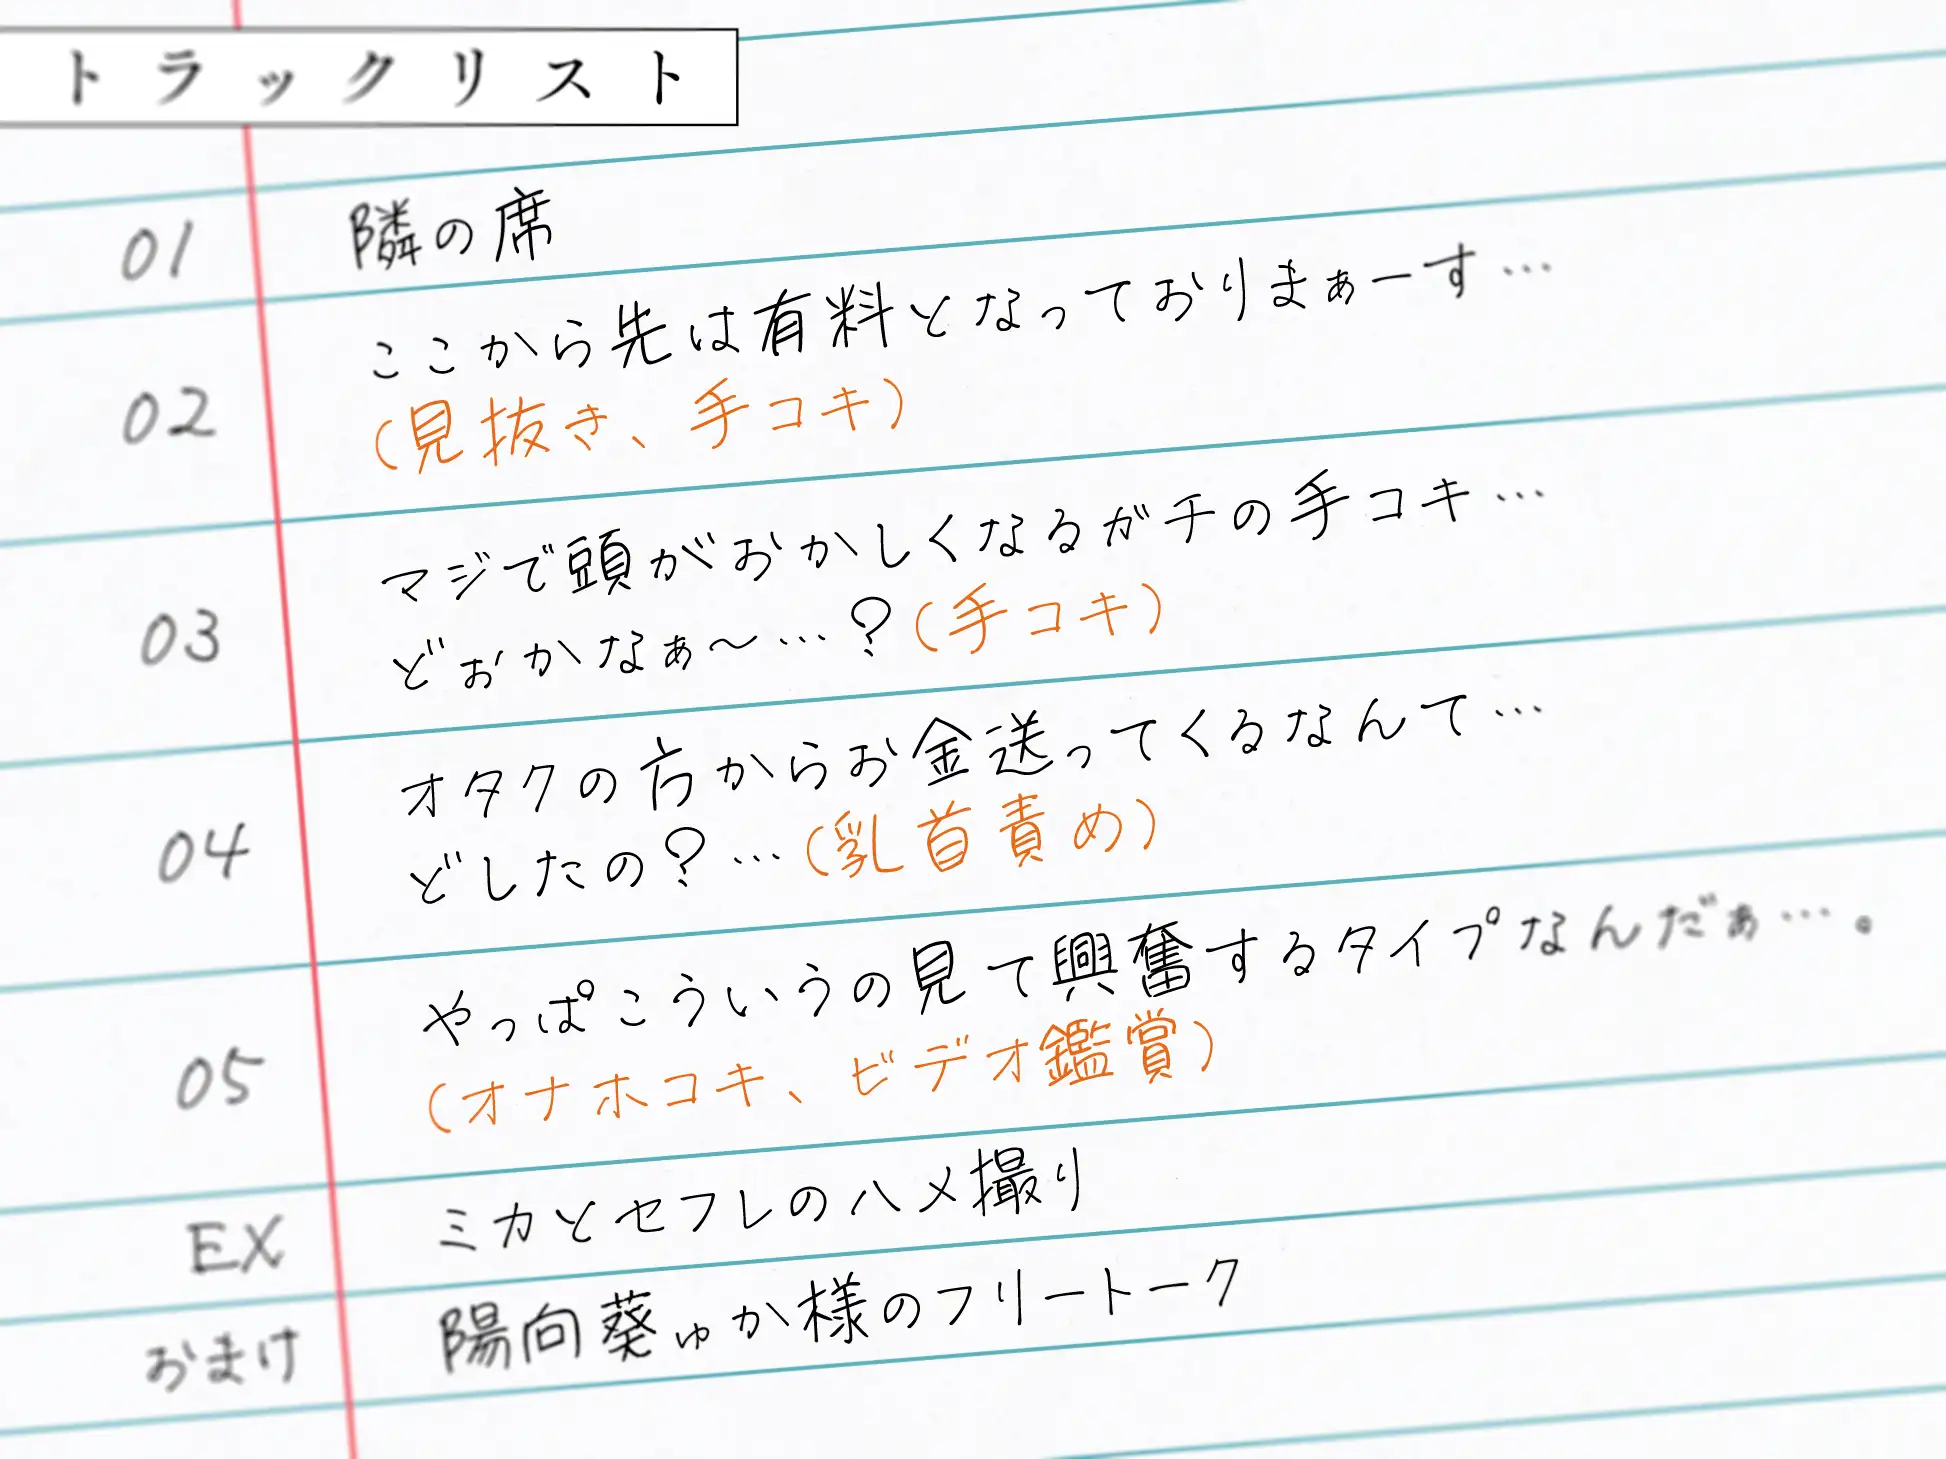 トラックリスト
01 隣の席
02 ここから先は有料となっておりまぁーす…
(見抜き、手コキ)
03 マジで頭がおかしくなるガチの手コキ…
どぉかなぁ～…？(手コキ)
04 オタクの方からお金送ってくるなんて…
どしたの？…(乳首責め)
05 やっぱこういうの見て興奮するタイプなんだぁ…。
(オナホコキ、ビデオ鑑賞)
EX ミカとセフレのハメ撮り
おまけ 陽向葵ゅか様のフリートーク